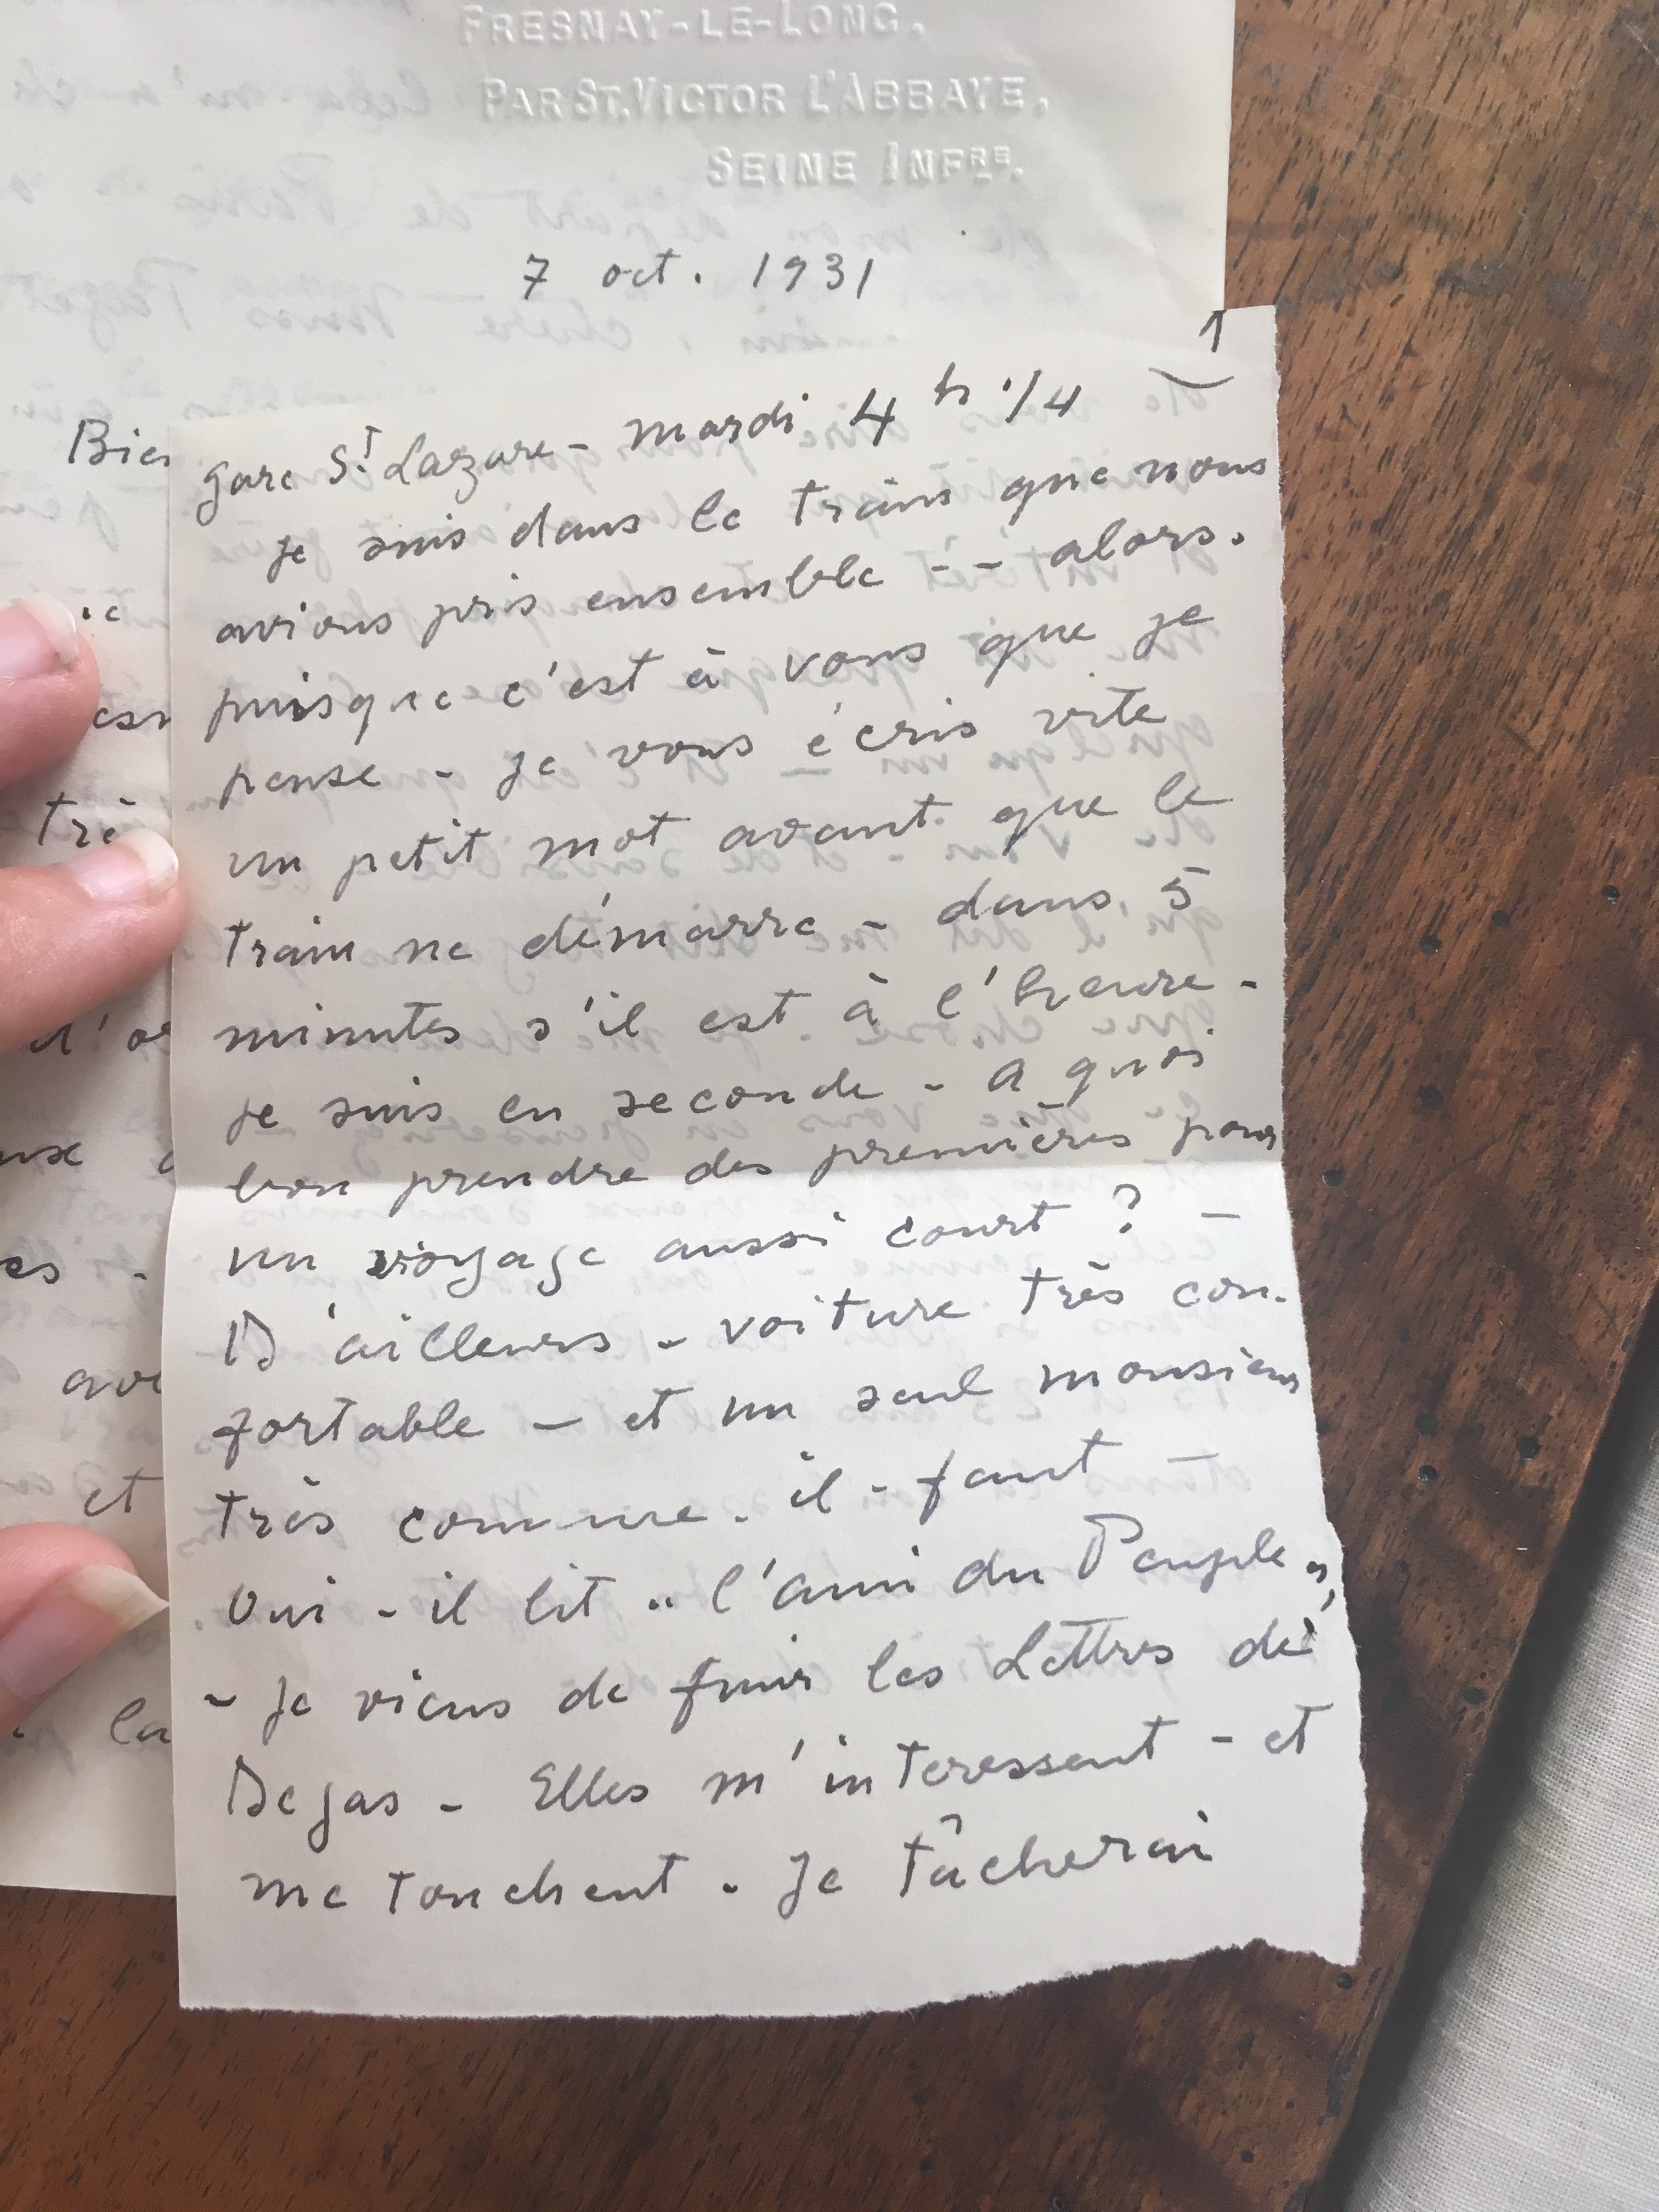 FRESNAY-LE-LONG,
PAR ST. VICTOR L'ABBAYE,
SEINE INFRE.
7 oct. 1931
1
gare St. Lazare - mardi 4 h 1/4
je suis dans le train que nous
avions pris ensemble -- alors.
puisque c'est à vous que je
pense - je vous écris vite
un petit mot avant que le
train ne démarre - dans 5
minutes s'il est à l'heure -
je suis en seconde - A quoi
bon prendre des premières pour
un voyage aussi court ? -
D'ailleurs - voiture très con-
fortable - et un seul monsieur
très comme - il - faut
Oui - il lit " l'ami du Peuple "
- Je viens de finir les Lettres de
Degas - Elles m'interessent - et
me touchent - Je tâcherai
Bien
tré
d'o
ave
et
la